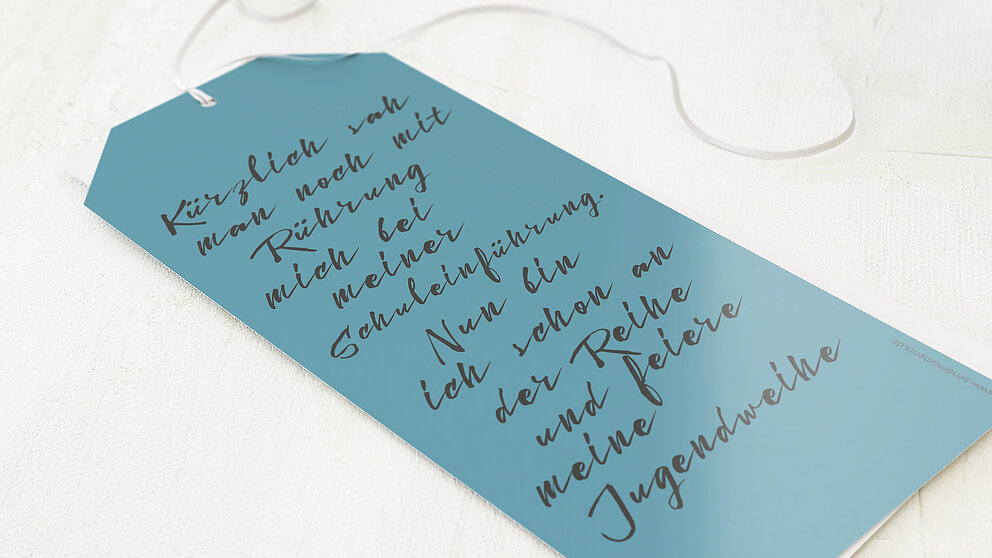 Kürzlich sah
man noch mit
Rührung
mich bei
meiner
Schuleinführung.
Nun bin
ich schon an
der Reihe
und feiere
meine
Jugendweihe
www.sendmoments.de